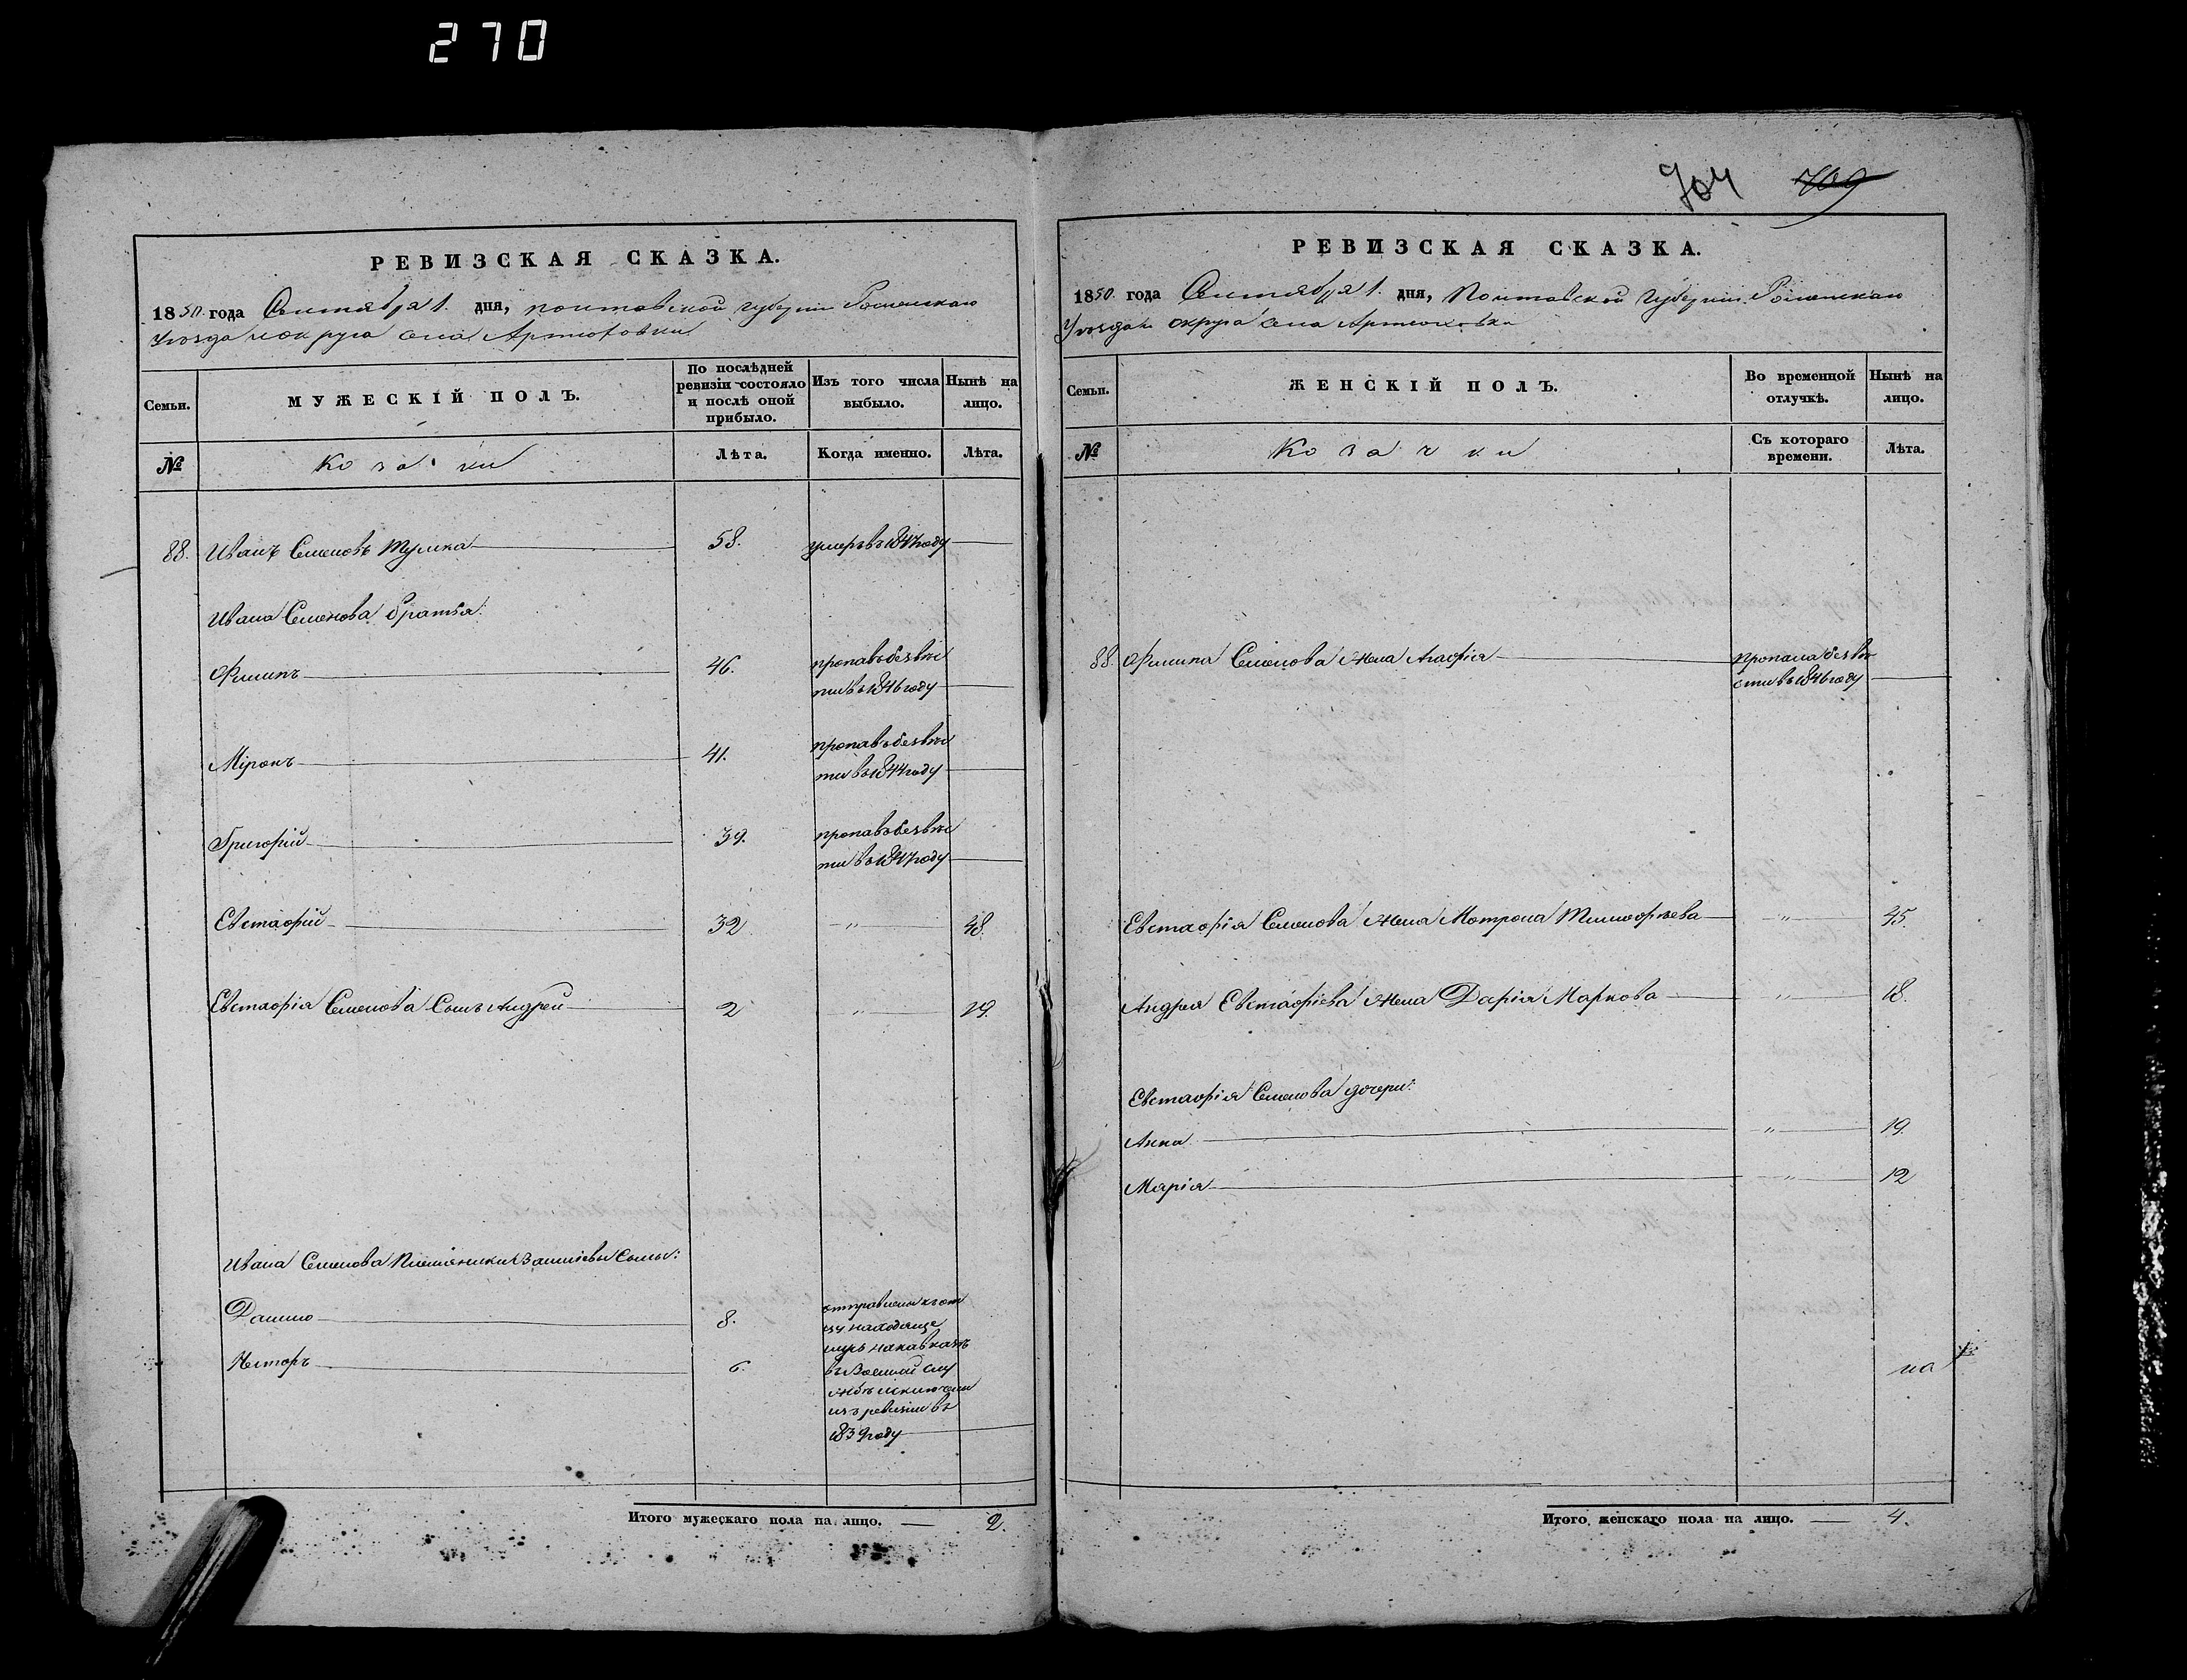 270
704 709
РЕВИЗСКАЯ СКАЗКА.
1850 года Сентября 1. дня, Полтавской губерніи Роменскаго
Уѣзда и округа села Артюховки
Семьи.
МУЖЕСКІЙ ПОЛЪ.
По послѣдней
ревизіи состояло
и послѣ оной
прибыло.
Изъ того числа
выбыло.
Нынѣ на
лицо.
№
Козаки
Лѣта.
Когда именно.
Лѣта.
88. Иванъ Семеновъ 58. умеръ въ 1847 году
Ивана Семенова братья:
Филипъ 46. пропавъ безвѣс
ти въ 1846 году
Міронъ 41. пропавъ безвѣс
ти въ 1844 году
Григорій 39. пропавъ безвѣс
ти въ 1847 году
Евстафій 32 " 48.
Евстафія Семенова Сынъ Андрей 2 " 19.
Ивана Семенова Племянники Василіевы Сыны:
Данило 8. отправлены къ от
цу находяще
муся на кавказѣ
Несторъ 6. въ Военной слу
жбѣ исключены
изъ ревизіи въ
1839 году
Итого мужескаго пола на лицо. — 2.
РЕВИЗСКАЯ СКАЗКА.
1850 года Сентября 1. дня, Полтавской Губерніи Роменскаго
Уѣзда и округа села Артюховки
Семьи.
ЖЕНСКІЙ ПОЛЪ.
Во временной
отлучкѣ.
Нынѣ на
лицо.
№
Козачки
Съ котораго
времени.
Лѣта.
88. Филипа Семенова жена Агафія пропала безвѣ
сти въ 1846 году
Евстафія Семенова жена Мотрона Тимофѣева " 45.
Андрея Евстафіева жена Дарія Маркова " 18.
Евстафія Семенова дочери:
Анна " 19.
Марія " 12
на
Итого женскаго пола на лицо. — 4.